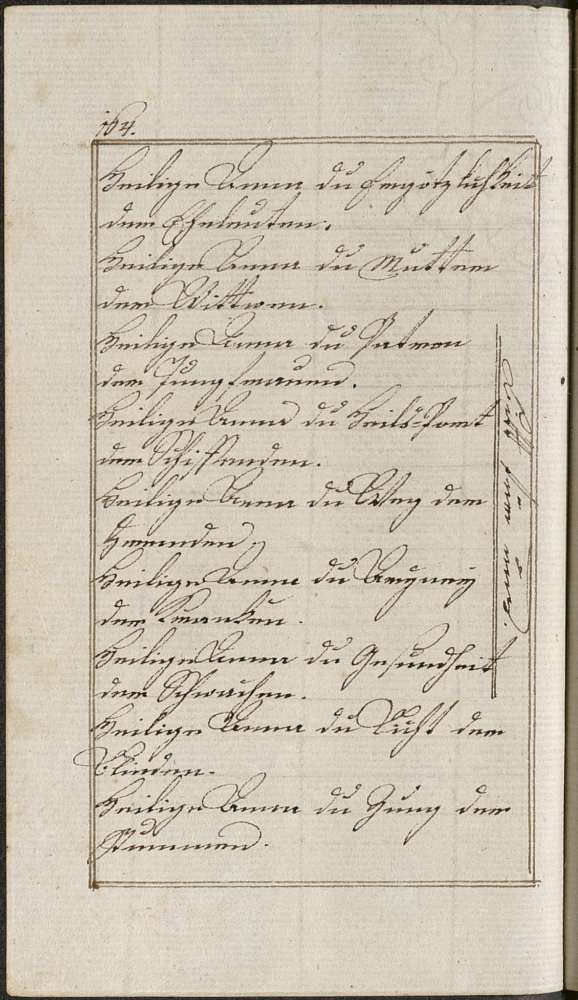 164.
Heilige Anna du Ergötzlichkeit
der Eheleuten.
Heilige Anna du Mutter
der Wittwen.
Heilige Anna du Patron
der Jungfrauen.
Heilige Anna du Heils-Port
der Schiffenden.
Heilige Anna du Weg der
Heilige Anna du Artzney
der Kranken.
Heilige Anna du Gesundheit
der Schwachen.
Heilige Anna du Licht der
Blinden.
Heilige Anna du Zung der
Stummen.
Bitt für uns.